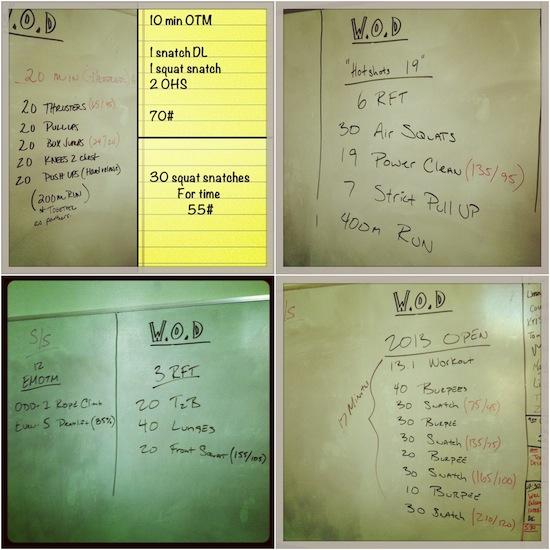 W.O.D
20 min
20 Thrusters (65/45)
20 Pullups
20 Box Jumps (24/20)
20 Knees 2 Chest
20 Push ups (Hand release)
(200m Run)
* Together
as partners
10 min OTM
1 snatch DL
1 squat snatch
2 OHS
70#
30 squat snatches
For time
55#
W.O.D
"Hotshots 19"
6 RFT
30 Air Squats
19 Power Clean (135/95)
7 Strict Pull UP
400m Run
S/S
12
EMOTM
ODD- 2 Rope Climb
Even- 5 Deadlift (85%)
W.O.D
3 RFT
20 T2B
40 Lunges
20 Front Squat (155/105)
W.O.D
2013 OPEN
13.1 Workout
17 Minute
40 Burpees
30 Snatch (75/45)
30 Burpee
30 Snatch (135/75)
20 Burpee
30 Snatch (165/100)
10 Burpee
30 Snatch (210/120)